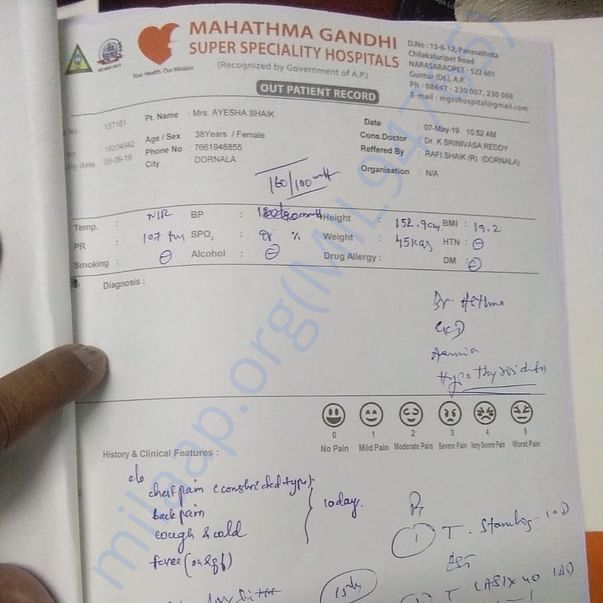 MAHATHMA GANDHI
SUPER SPECIALITY HOSPITALS
(Recognized by Government of A.P.)
Your Health, Our Mission
OUT PATIENT RECORD
D.No : 15-8-12, Panasathota
Chilakaluripet Road
NARASARAOPET - 522 601
Guntur (Dt.), A.P.
Ph : 08647 - 230 007, 230 008
E-mail : mgsshospital@gmail.com
No. 157161
Pt. Name : Mrs. AYESHA.SHAIK
Date : 07-May-19 10:52 AM
Age / Sex : 38Years / Female
Cons.Doctor : Dr. K SRINIVASA REDDY
No. 19204942
Phone No : 7661948855
Reffered By : RAFI.SHAIK (R) (DORNALA)
date 06-06-19
City : DORNALA
Organisation : N/A
160/100
Temp. : BP : Height 152.9cm BMI : 19.2
PR : 107 SPO2 : 98 % Weight : 45kgs HTN : ⊖
Smoking : ⊖ Alcohol : ⊖ Drug Allergy : DM : ⊖
Diagnosis :
Br Asthma
CKD
Hypothyroidism
0 1 2 3 4 5
No Pain Mild Pain Moderate Pain Severe Pain Very Severe Pain Worst Pain
History & Clinical Features :
c/o
chest pain (constricted type)
back pain
10 days
cough & cold
fever (on & off)
1 T.
milaap.org(MIL94745)